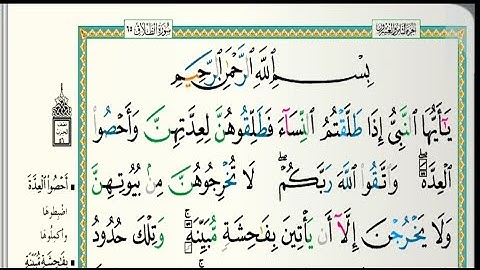 سُورَةُ الطَّلَاقِ ٦٥
الجزء الثامن والعشرون
بِسْمِ ٱللَّهِ ٱلرَّحْمَٰنِ ٱلرَّحِيمِ
يَٰٓأَيُّهَا ٱلنَّبِيُّ إِذَا طَلَّقْتُمُ ٱلنِّسَآءَ فَطَلِّقُوهُنَّ لِعِدَّتِهِنَّ وَأَحْصُوا۟
ٱلْعِدَّةَ ۖ وَٱتَّقُوا۟ ٱللَّهَ رَبَّكُمْ ۖ لَا تُخْرِجُوهُنَّ مِنۢ بُيُوتِهِنَّ
وَلَا يَخْرُجْنَ إِلَّآ أَن يَأْتِينَ بِفَٰحِشَةٍ مُّبَيِّنَةٍ ۚ وَتِلْكَ حُدُودُ
أَحْصُوا الْعِدَّةَ
اضبطوها
وأكملوها
بِفَاحِشَةٍ مُّبَيِّنَةٍ